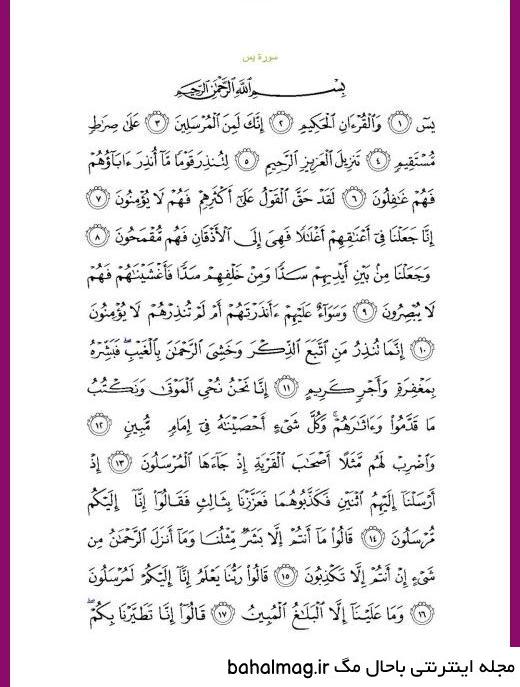 سورة يس
بِسْمِ ٱللَّهِ ٱلرَّحْمَٰنِ ٱلرَّحِيمِ
يسٓ ۝١ وَٱلْقُرْءَانِ ٱلْحَكِيمِ ۝٢ إِنَّكَ لَمِنَ ٱلْمُرْسَلِينَ ۝٣ عَلَىٰ صِرَٰطٍ
مُّسْتَقِيمٍ ۝٤ تَنزِيلَ ٱلْعَزِيزِ ٱلرَّحِيمِ ۝٥ لِتُنذِرَ قَوْمًا مَّآ أُنذِرَ ءَابَآؤُهُمْ
فَهُمْ غَٰفِلُونَ ۝٦ لَقَدْ حَقَّ ٱلْقَوْلُ عَلَىٰٓ أَكْثَرِهِمْ فَهُمْ لَا يُؤْمِنُونَ ۝٧
إِنَّا جَعَلْنَا فِىٓ أَعْنَٰقِهِمْ أَغْلَٰلًا فَهِىَ إِلَى ٱلْأَذْقَانِ فَهُم مُّقْمَحُونَ ۝٨
وَجَعَلْنَا مِنۢ بَيْنِ أَيْدِيهِمْ سَدًّا وَمِنْ خَلْفِهِمْ سَدًّا فَأَغْشَيْنَٰهُمْ فَهُمْ
لَا يُبْصِرُونَ ۝٩ وَسَوَآءٌ عَلَيْهِمْ ءَأَنذَرْتَهُمْ أَمْ لَمْ تُنذِرْهُمْ لَا يُؤْمِنُونَ
۝١٠ إِنَّمَا تُنذِرُ مَنِ ٱتَّبَعَ ٱلذِّكْرَ وَخَشِىَ ٱلرَّحْمَٰنَ بِٱلْغَيْبِ ۖ فَبَشِّرْهُ
بِمَغْفِرَةٍ وَأَجْرٍ كَرِيمٍ ۝١١ إِنَّا نَحْنُ نُحْىِ ٱلْمَوْتَىٰ وَنَكْتُبُ
مَا قَدَّمُوا۟ وَءَاثَٰرَهُمْ ۚ وَكُلَّ شَىْءٍ أَحْصَيْنَٰهُ فِىٓ إِمَامٍ مُّبِينٍ ۝١٢
وَٱضْرِبْ لَهُم مَّثَلًا أَصْحَٰبَ ٱلْقَرْيَةِ إِذْ جَآءَهَا ٱلْمُرْسَلُونَ ۝١٣ إِذْ
أَرْسَلْنَآ إِلَيْهِمُ ٱثْنَيْنِ فَكَذَّبُوهُمَا فَعَزَّزْنَا بِثَالِثٍ فَقَالُوٓا۟ إِنَّآ إِلَيْكُم
مُّرْسَلُونَ ۝١٤ قَالُوا۟ مَآ أَنتُمْ إِلَّا بَشَرٌ مِّثْلُنَا وَمَآ أَنزَلَ ٱلرَّحْمَٰنُ مِن
شَىْءٍ إِنْ أَنتُمْ إِلَّا تَكْذِبُونَ ۝١٥ قَالُوا۟ رَبُّنَا يَعْلَمُ إِنَّآ إِلَيْكُمْ لَمُرْسَلُونَ
۝١٦ وَمَا عَلَيْنَآ إِلَّا ٱلْبَلَٰغُ ٱلْمُبِينُ ۝١٧ قَالُوٓا۟ إِنَّا تَطَيَّرْنَا بِكُمْ ۖ
مجله اینترنتی باحال مگ bahalmag.ir